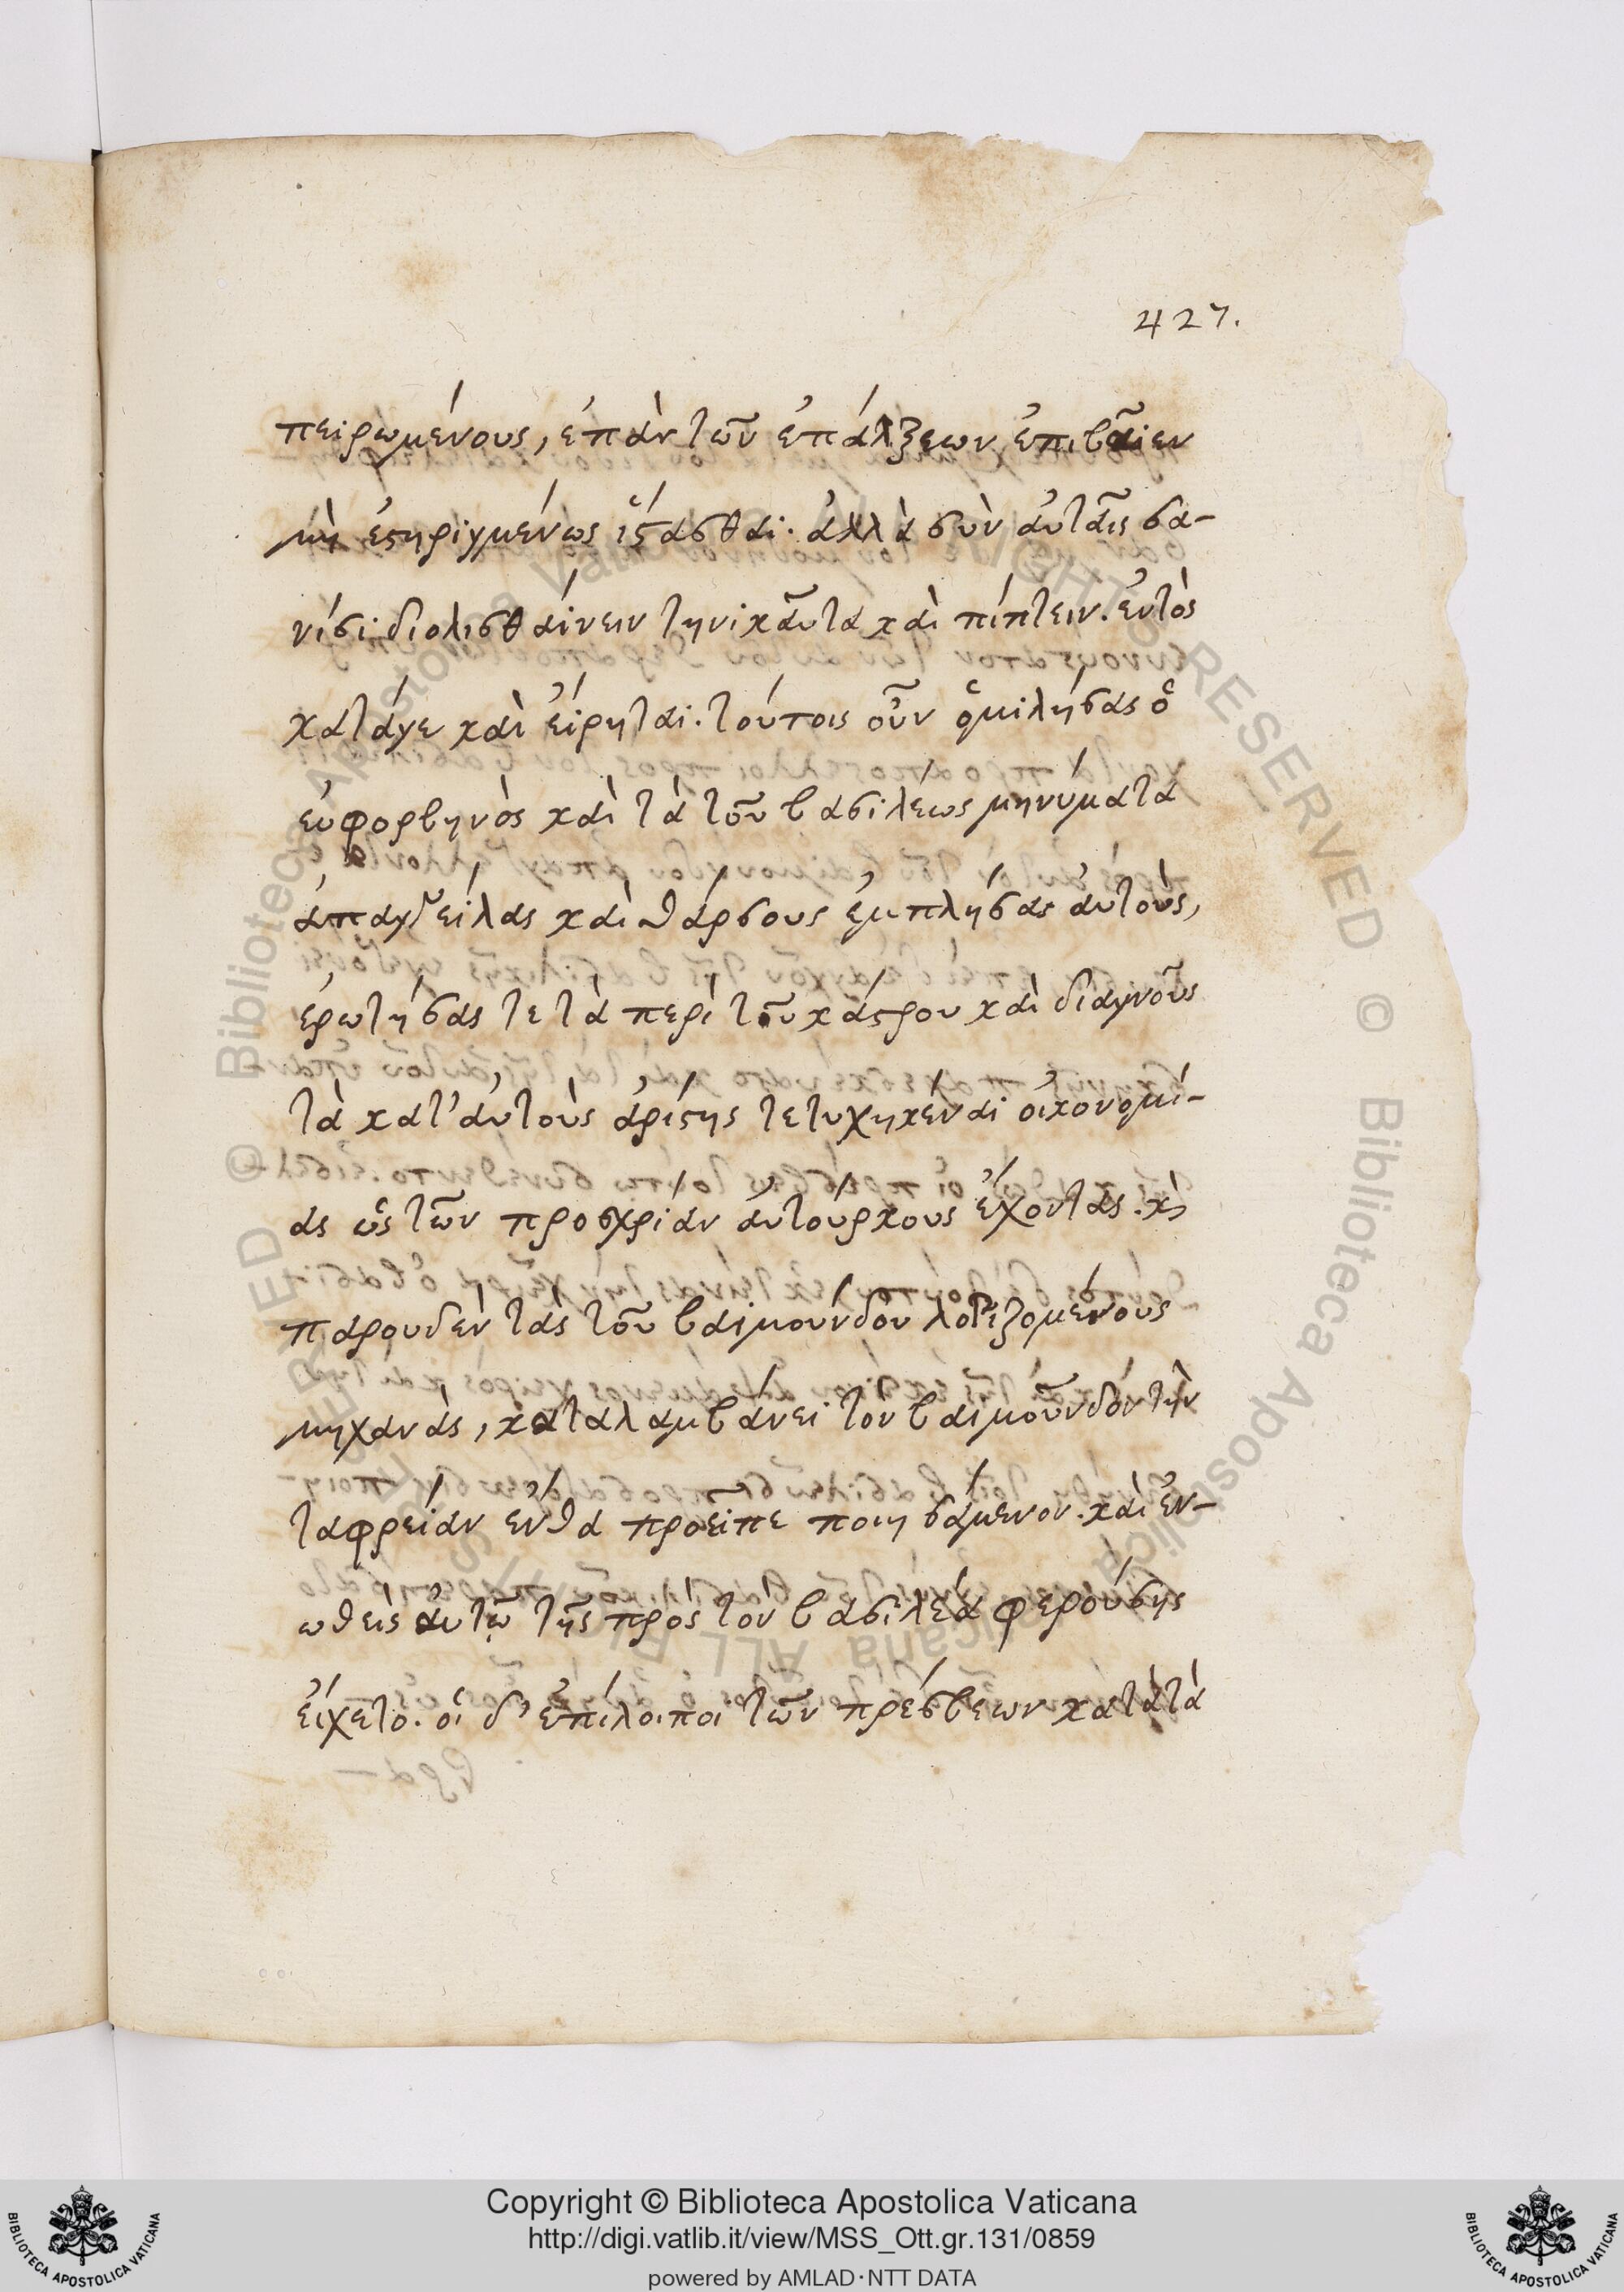 427.
πειρωμένους, ἐπὰν τῶν ἐπάλξεων ἐπιβᾶιεν
μὴ ἐστηριγμένως ἵστασθαι. ἀλλὰ σὺν ἀυτᾶις σα-
νίσι διολισθάινειν τηνικᾶυτα κὰι πίπτειν. ἐντὸς
κατάγε κὰι ἐίρηται. τούτοις οὖν ὁμιλήσας ὁ
ἐυφορβηνὸς κὰι τὰ τοῦ βασιλέως μηνύματα
ἀπαγγείλας κὰι θάρσους ἐμπλήσας ἀυτοὺς,
ἐρωτήσας τε τὰ περὶ τοῦ κάστρου κὰι διαγνοῦς
τὰ κατ' ἀυτοὺς ἀρίστης τετυχηκέναι οἰκονομί-
ας ὡς τῶν προσχρίαν ἀυτούρκους ἔχοντας. κὶ
παρουδὲν τὰς τοῦ βαιμούνδου λογιζομένους
μηχανὰς, καταλαμβάνει τὸν βαιμοῦνδον τὴν
ταφρείαν ἔνθα προεῖπε ποιησάμενον. κὰι ἐν-
ωθεὶς ἀυτῷ τῆς πρὸς τὸν βασιλέα φερούσης
ἐίχετο. οἱ δ' ἐπίλοιποι τῶν πρέσβεων κατὰ τὰ
Copyright © Biblioteca Apostolica Vaticana
http://digi.vatlib.it/view/MSS_Ott.gr.131/0859
powered by AMLAD·NTT DATA
BIBLIOTECA APOSTOLICA VATICANA
BIBLIOTECA APOSTOLICA VATICANA